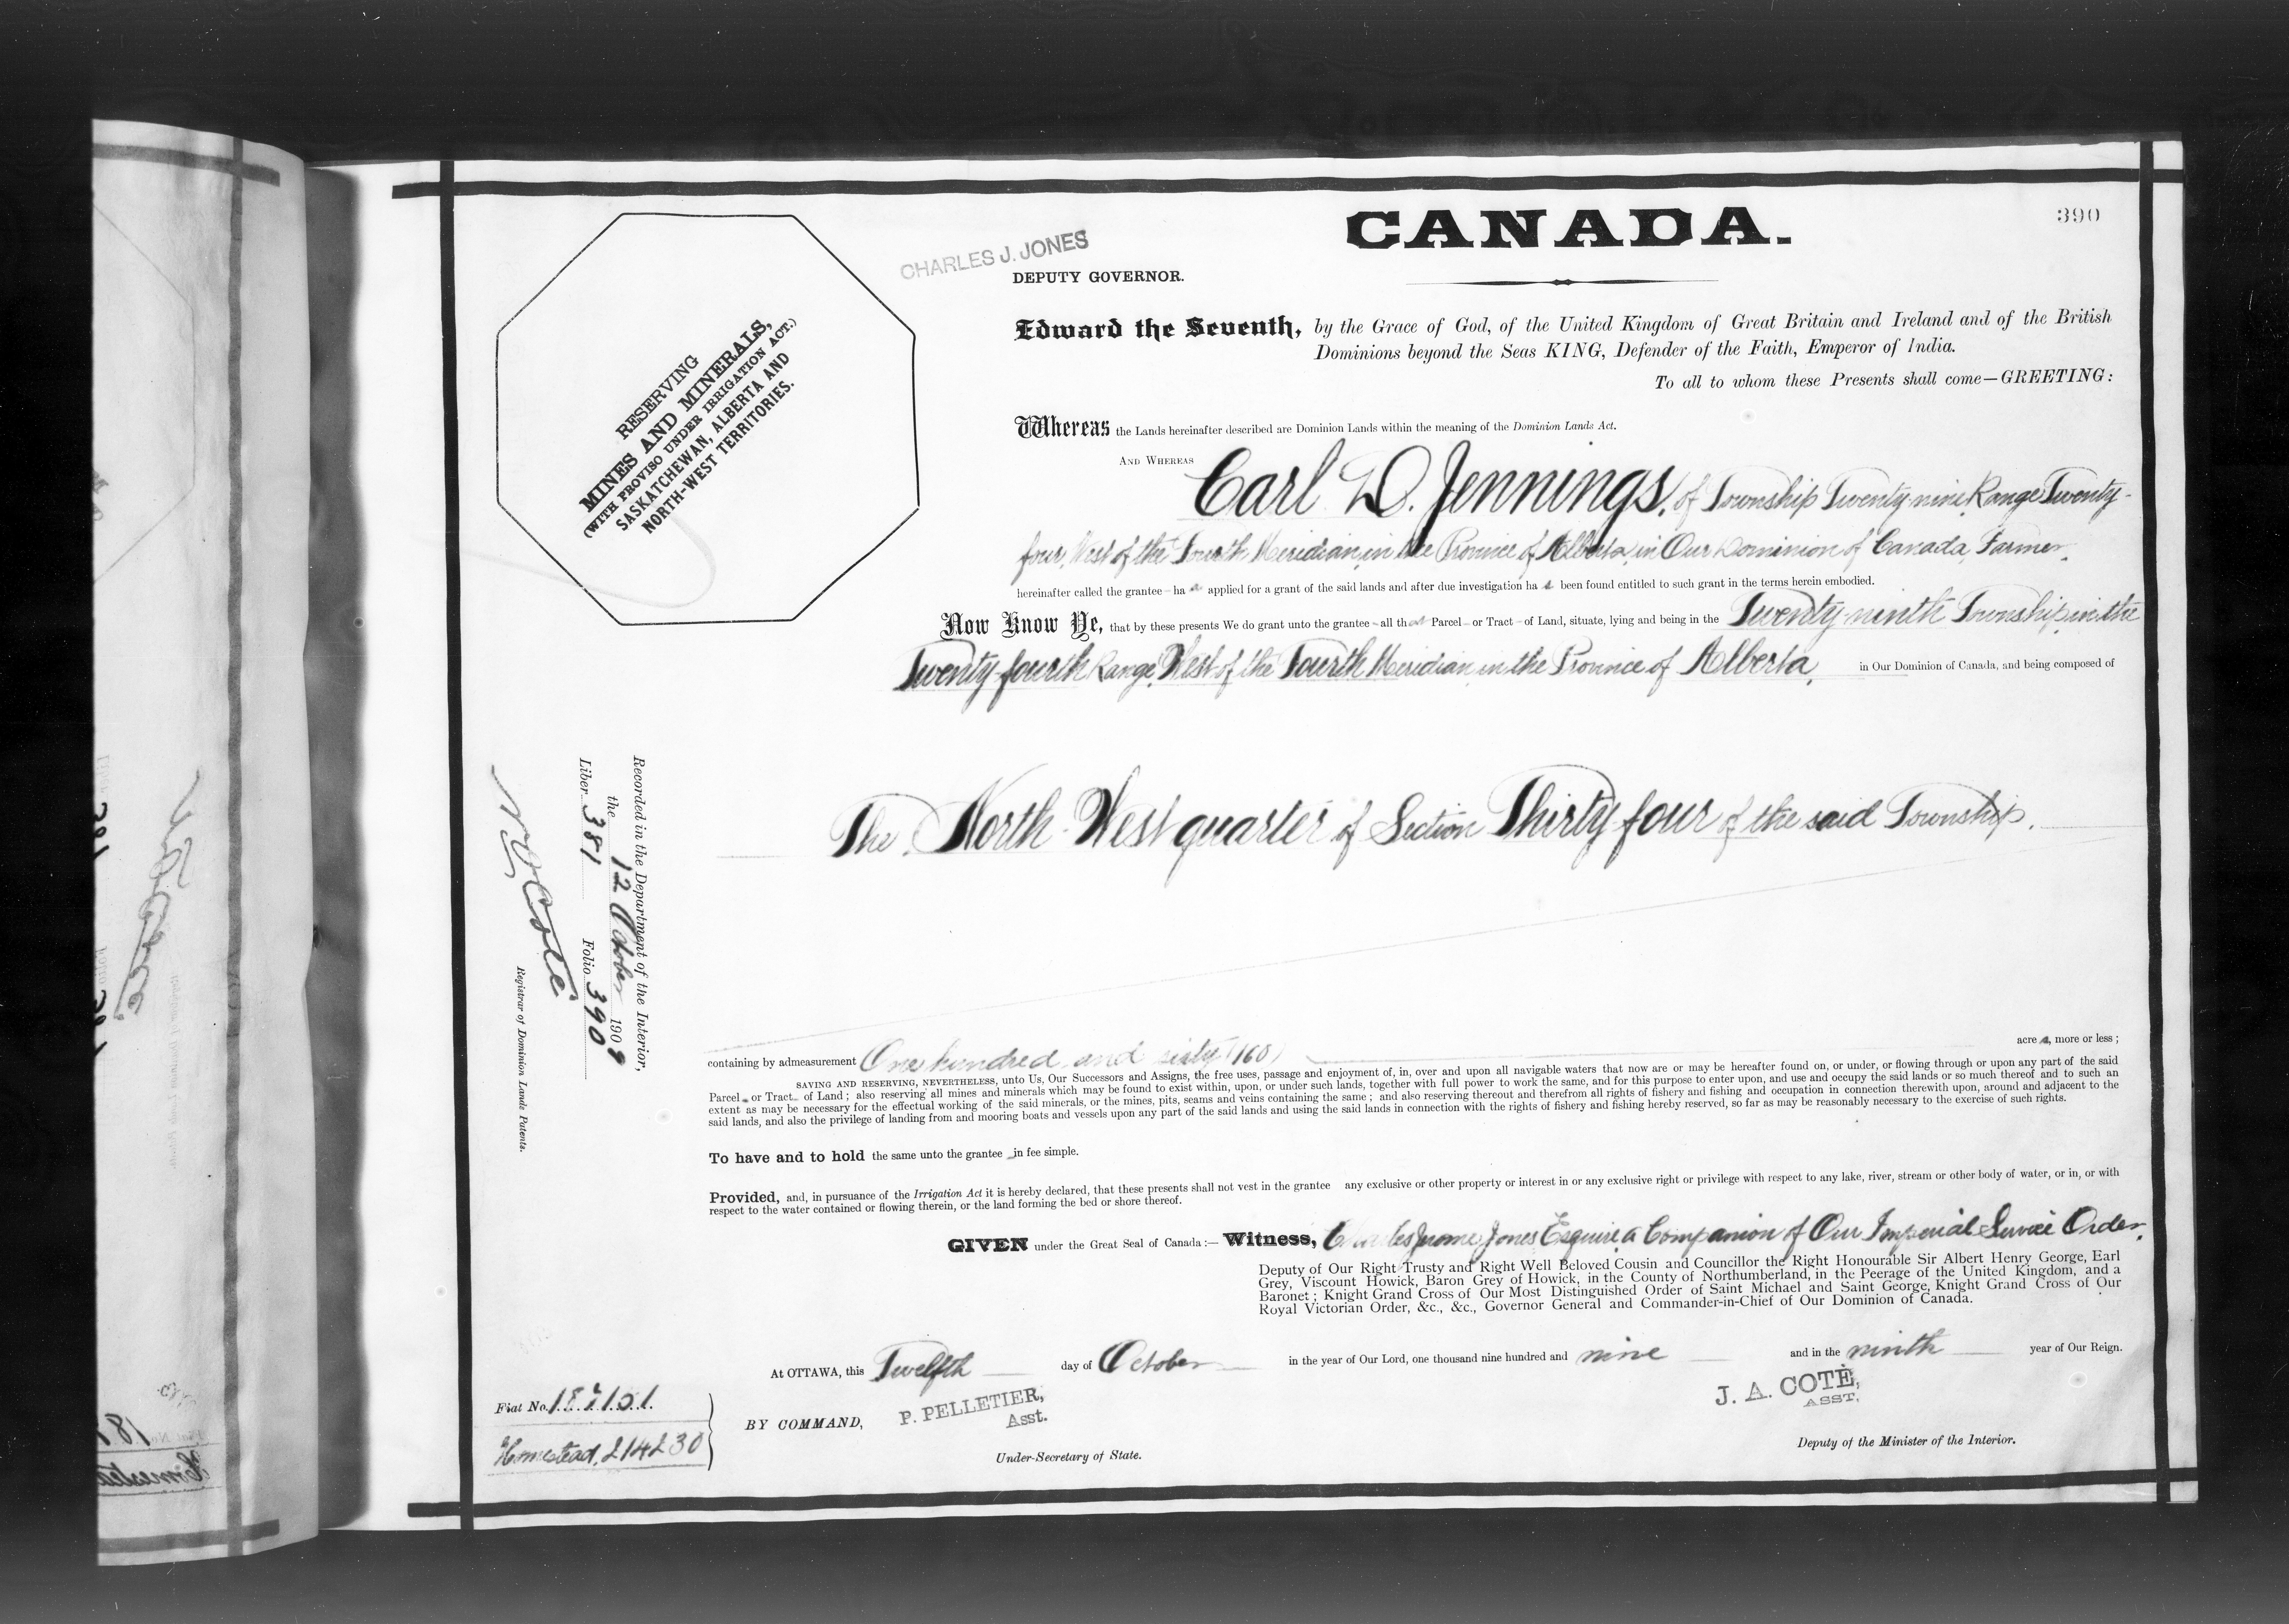 390
CANADA.
CHARLES J. JONES
DEPUTY GOVERNOR.
RESERVING
MINES AND MINERALS,
(WITH PROVISO UNDER IRRIGATION ACT.)
SASKATCHEWAN, ALBERTA AND
NORTH-WEST TERRITORIES.
Edward the Seventh, by the Grace of God, of the United Kingdom of Great Britain and Ireland and of the British
Dominions beyond the Seas KING, Defender of the Faith, Emperor of India.
To all to whom these Presents shall come—GREETING:
Whereas the Lands hereinafter described are Dominion Lands within the meaning of the Dominion Lands Act.
AND WHEREAS Carl D. Jennings, of Township Twenty-nine, Range Twenty-
four, West of the Fourth Meridian, in the Province of Alberta, in Our Dominion of Canada, Farmer,
hereinafter called the grantee—has applied for a grant of the said lands and after due investigation has been found entitled to such grant in the terms herein embodied.
Now Know Ye, that by these presents We do grant unto the grantee—all that Parcel—or Tract—of Land, situate, lying and being in the Twenty-ninth Township, in the
Twenty-fourth Range, West of the Fourth Meridian, in the Province of Alberta, in Our Dominion of Canada, and being composed of
The North-West quarter of Section Thirty four of the said Township.
Recorded in the Department of the Interior,
the 12 October 1909
Liber 381 Folio 390
Cote
Registrar of Dominion Lands Patents.
containing by admeasurement One hundred and sixty (160) acres, more or less;
SAVING AND RESERVING, NEVERTHELESS, unto Us, Our Successors and Assigns, the free uses, passage and enjoyment of, in, over and upon all navigable waters that now are or may be hereafter found on, or under, or flowing through or upon any part of the said
Parcel—or Tract—of Land; also reserving all mines and minerals which may be found to exist within, upon, or under such lands, together with full power to work the same, and for this purpose to enter upon, and use and occupy the said lands or so much thereof and to such an
extent as may be necessary for the effectual working of the said minerals, or the mines, pits, seams and veins containing the same; and also reserving thereout and therefrom all rights of fishery and fishing and occupation in connection therewith upon, around and adjacent to the
said lands, and also the privilege of landing from and mooring boats and vessels upon any part of the said lands and using the said lands in connection with the rights of fishery and fishing hereby reserved, so far as may be reasonably necessary to the exercise of such rights.
To have and to hold the same unto the grantee—in fee simple.
Provided, and, in pursuance of the Irrigation Act it is hereby declared, that these presents shall not vest in the grantee any exclusive or other property or interest in or any exclusive right or privilege with respect to any lake, river, stream or other body of water, or in, or with
respect to the water contained or flowing therein, or the land forming the bed or shore thereof.
GIVEN under the Great Seal of Canada:— Witness, Charles Jerome Jones Esquire a Companion of Our Imperial Service Order,
Deputy of Our Right Trusty and Right Well Beloved Cousin and Councillor the Right Honourable Sir Albert Henry George, Earl
Grey, Viscount Howick, Baron Grey of Howick, in the County of Northumberland, in the Peerage of the United Kingdom, and a
Baronet; Knight Grand Cross of Our Most Distinguished Order of Saint Michael and Saint George, Knight Grand Cross of Our
Royal Victorian Order, &c., &c., Governor General and Commander-in-Chief of Our Dominion of Canada.
At OTTAWA, this Twelfth day of October in the year of Our Lord, one thousand nine hundred and nine and in the ninth year of Our Reign.
Fiat No.
Homestead,
BY COMMAND,
P. PELLETIER,
Asst.
Under-Secretary of State.
J. A. COTÉ,
ASST.
Deputy of the Minister of the Interior.